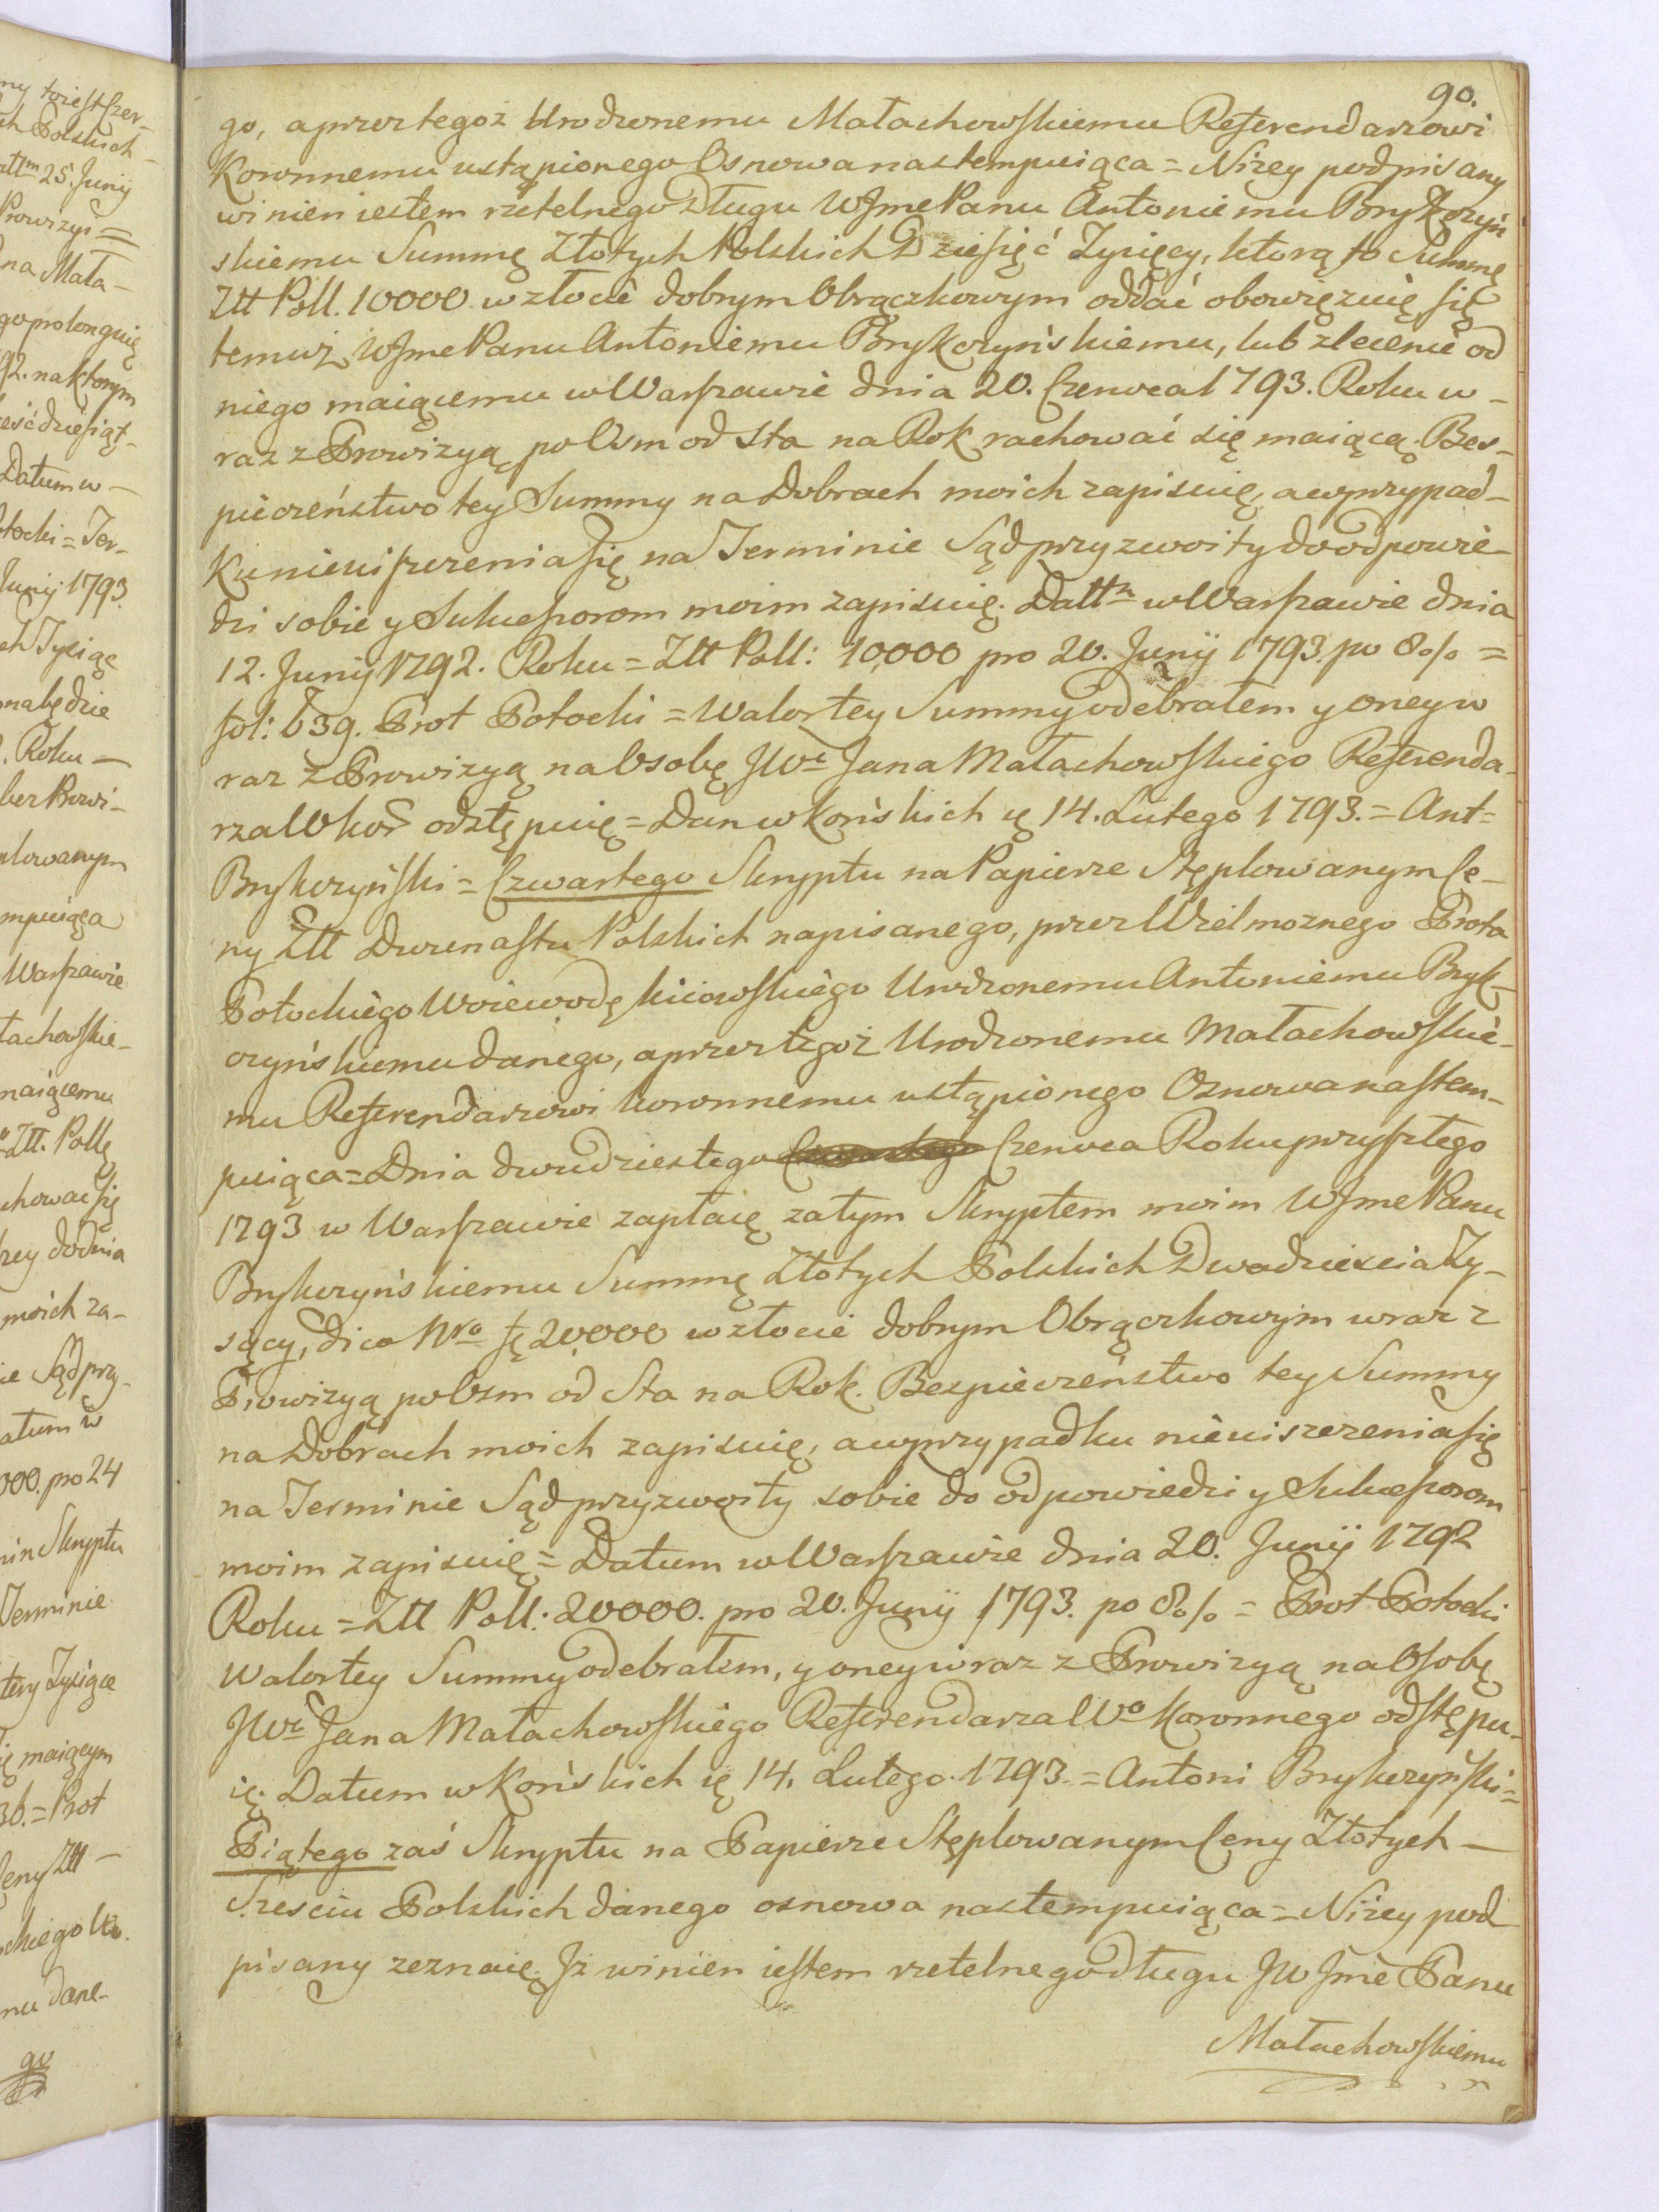 90.
go, a przez tegoz Urodzonemu Małachowskiemu Referendarzowi
Koronnemu ustąpionego Osnowa nastempuiąca = Niżey podpisany
winien iestem rzetelnego Długu WJme Panu Antoniemu Brykczyń
skiemu Summę Złotych Polskich Dziesięć Tysięcy, którą to Summę
Ztt Poll. 10000 w złocie dobrym Obrączkowym oddać obowięzuię się
temuż WJme Panu Antoniemu Brykczyńskiemu, lub zlecenie od
niego maiącemu w Warszawie dnia 20. Czerwca 1793. Roku w-
raz z Prowizyą po Osm od Sta na Rok rachować się maiącą. Bes-
pieczeństwo tey Summy na Dobrach moich zapisuię, a w przypad-
ku nieuiszczenia się na Terminie Sąd przyzwoity do odpowie-
dzi sobie y Sukcessorom moim zapisuię. Dattm w Warszawie dnia
12. Junij 1792. Roku = Ztt Poll: 10,000 pro 20. Junij 1793. po 8% =
fol: 639. Prot Potocki = Walor tey Summy odebrałem y oney w
raz z Prowizyą na Osobę JWo Jana Małachowskiego Referenda-
rza W Kor odstępuię = Dan w Końskich ię 14. Lutego 1793. = Ant=
Brykczyński = Czwartego Skryptu na Papierze Stęplowanym Ce-
ny Ztt Dwunastu Polskich napisanego, przez Wielmoznego Prota
Potockiego Woiewodę kiiowskiego Urodzonemu Antoniemu Bryk-
czyńskiemu danego, a przez tegoż Urodzonemu Małachowskie-
mu Referendarzowi koronnemu ustąpionego Osnowa nastem-
puiąca = Dnia dwudziestego Czerwca Roku przyszłego
1793 w Warszawie zapłacę za tym Skryptem moim WJme Panu
Brykczyńskiemu Summę Złotych Polskich Dwadzieścia Ty-
sący, dico Nro fę 20,000 w złocie dobrym Obrączkowym wraz z
Prowizyą po Osm od Sta na Rok. Bezpieczeństwo tey Summy
na Dobrach moich zapisuię, a w przypadku nieuiszczenia się
na Terminie Sąd przyzwoity sobie do odpowiedzi y Sukcessorom
moim zapisuię = Datum w Warszawie dnia 20. Junij 1792
Roku = Ztt Poll: 20000. pro 20. Junij 1793. po 8% = Prot Potocki
Walor tey Summy odebrałem, y oney wraz z Prowizyą na Osobę
JWo Jana Małachowskiego Referendarza Wo Koronnego odstępu-
ię. Datum w Końskich ię 14. Lutego. 1793. = Antoni Brykczyński =
Piątego zaś Skryptu na Papierze Stęplowanym Ceny Złotych —
Sześciu Polskich danego osnowa nastempuiąca = Niżey pod
pisany zeznaię, Iż winien iestem rzetelnego długu JW Jme Panu
Małachowskiemu